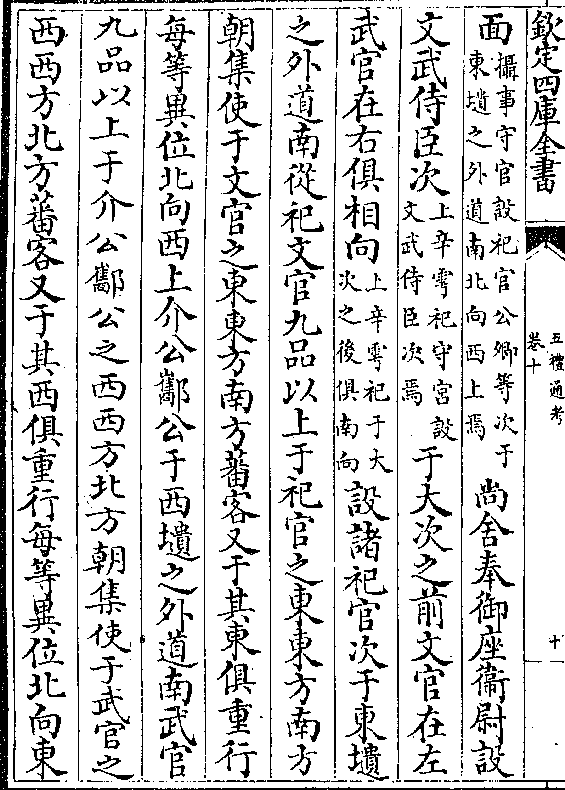 欽定四庫全書
五禮通考
卷十
十
面攝事守官設祀官公卿等次于東壝之外道南北向西上焉尚舍奉御座衞尉設
文武侍臣次上辛雩祀守宫設文武侍臣次焉于大次之前文官在左
武官在右俱相向上辛雩祀于大次之後俱南向設諸祀官次于東壝
之外道南從祀文官九品以上于祀官之東東方南方
朝集使于文官之東東方南方蕃客又于其東俱重行
每等異位北向西上介公酅公于西壝之外道南武官
九品以上于介公酅公之西西方北方朝集使于武官之
西西方北方蕃客又于其西俱重行每等異位北向東